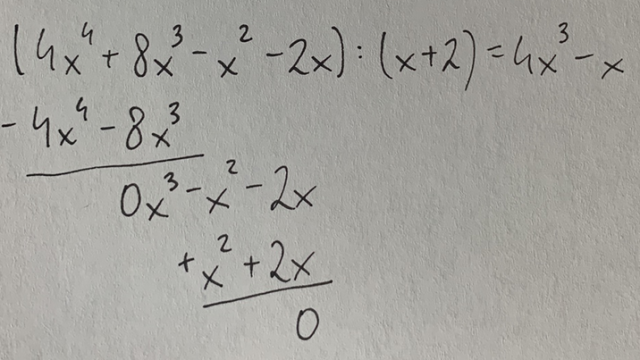 (4x⁴ + 8x³ - x² - 2x) : (x+2) = 4x³ - x
- 4x⁴ - 8x³
0x³ - x² - 2x
+ x² + 2x
0